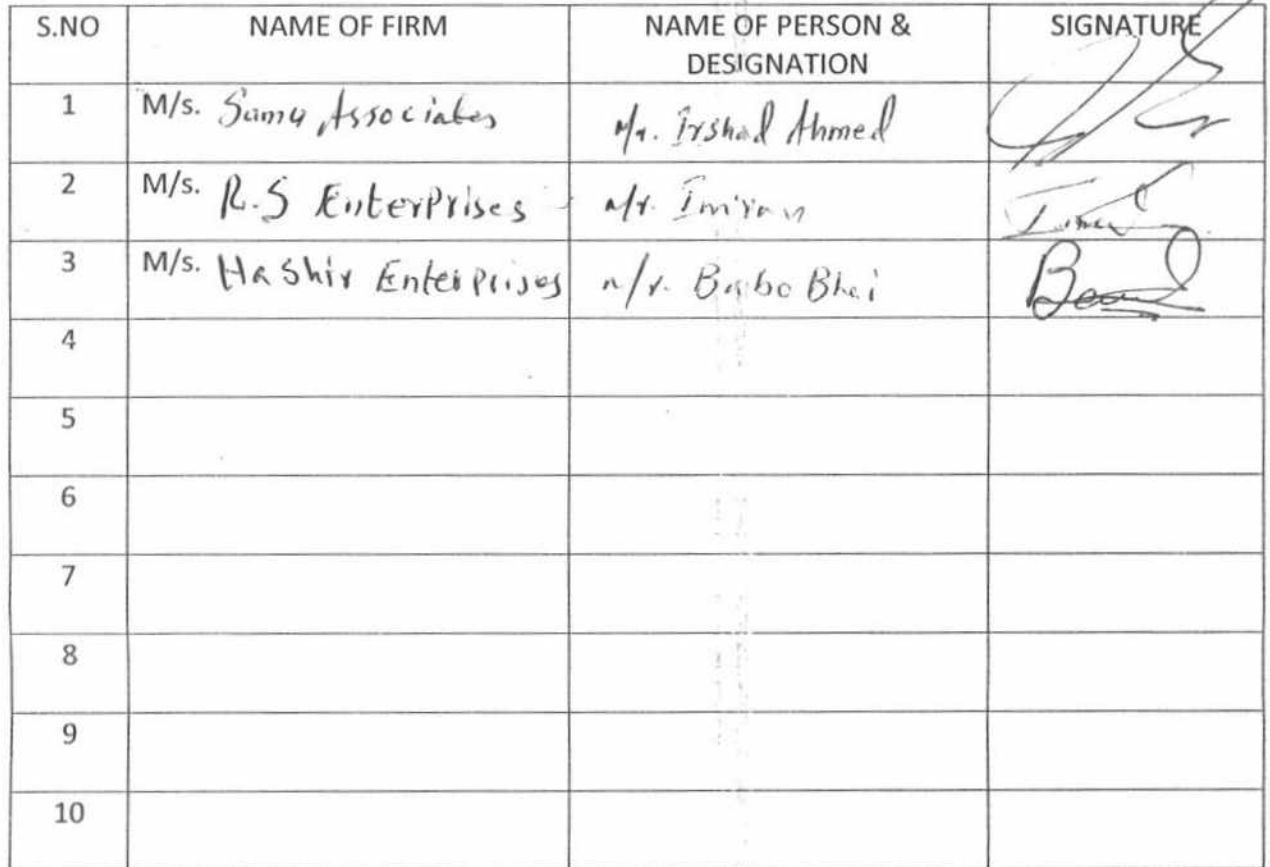 S.NO NAME OF FIRM NAME OF PERSON & SIGNATURE
DESIGNATION
1 M/s. Sama Associates Mr. Irshad Ahmed
2 M/s. R.S Enterprises Mr. Imran
3 M/s. Hashir Enterprises Mr. Babo Bhai
4
5
6
7
8
9
10